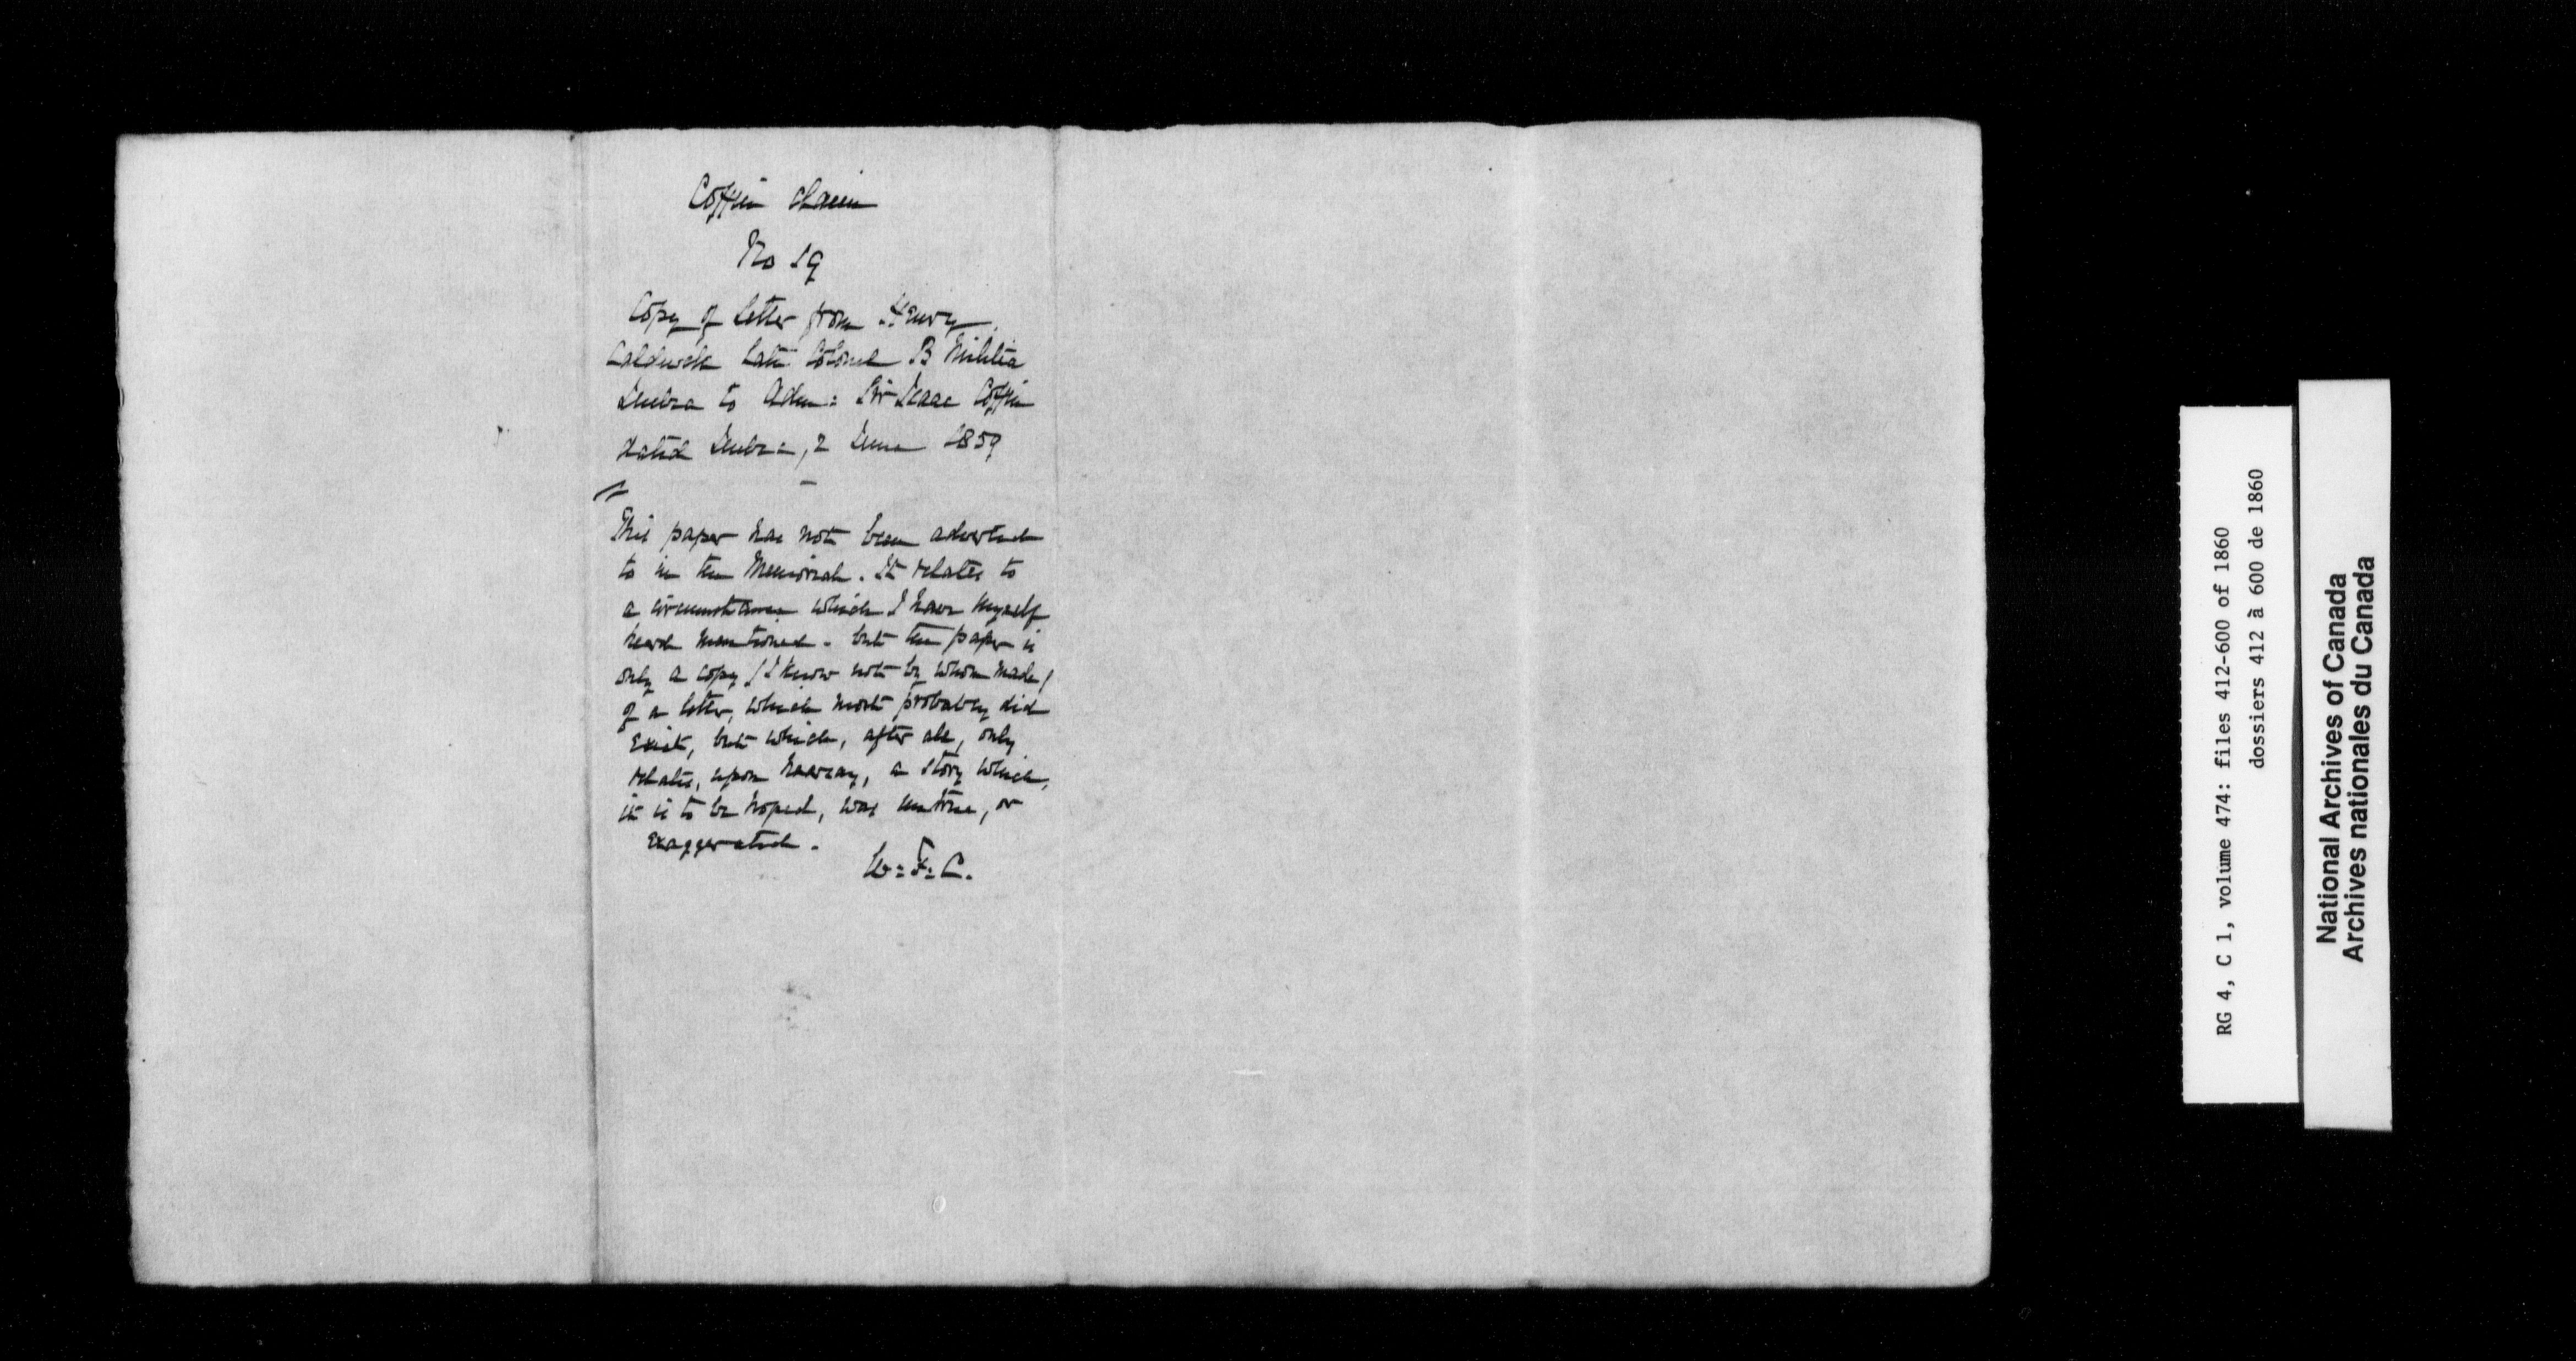 Coffin claim
No 19
Copy of letter from Henry
Caldwell Late Colonel B Militia
Quebec to Adm: Sir Isaac Coffin
dated Quebec, 2 June 1859
This paper has not been adverted
to in the Memorial. It relates to
a circumstance which I have myself
heard mentioned - but the paper is
only a copy (I know not by whom made)
of a letter, which most probably did
exist, but which, after all, only
relates, upon hearsay, a story which,
it is to be hoped, was untrue, or
exaggerated.
W=F=C.
RG 4, C 1, volume 474: files 412-600 of 1860
dossiers 412 à 600 de 1860
National Archives of Canada
Archives nationales du Canada